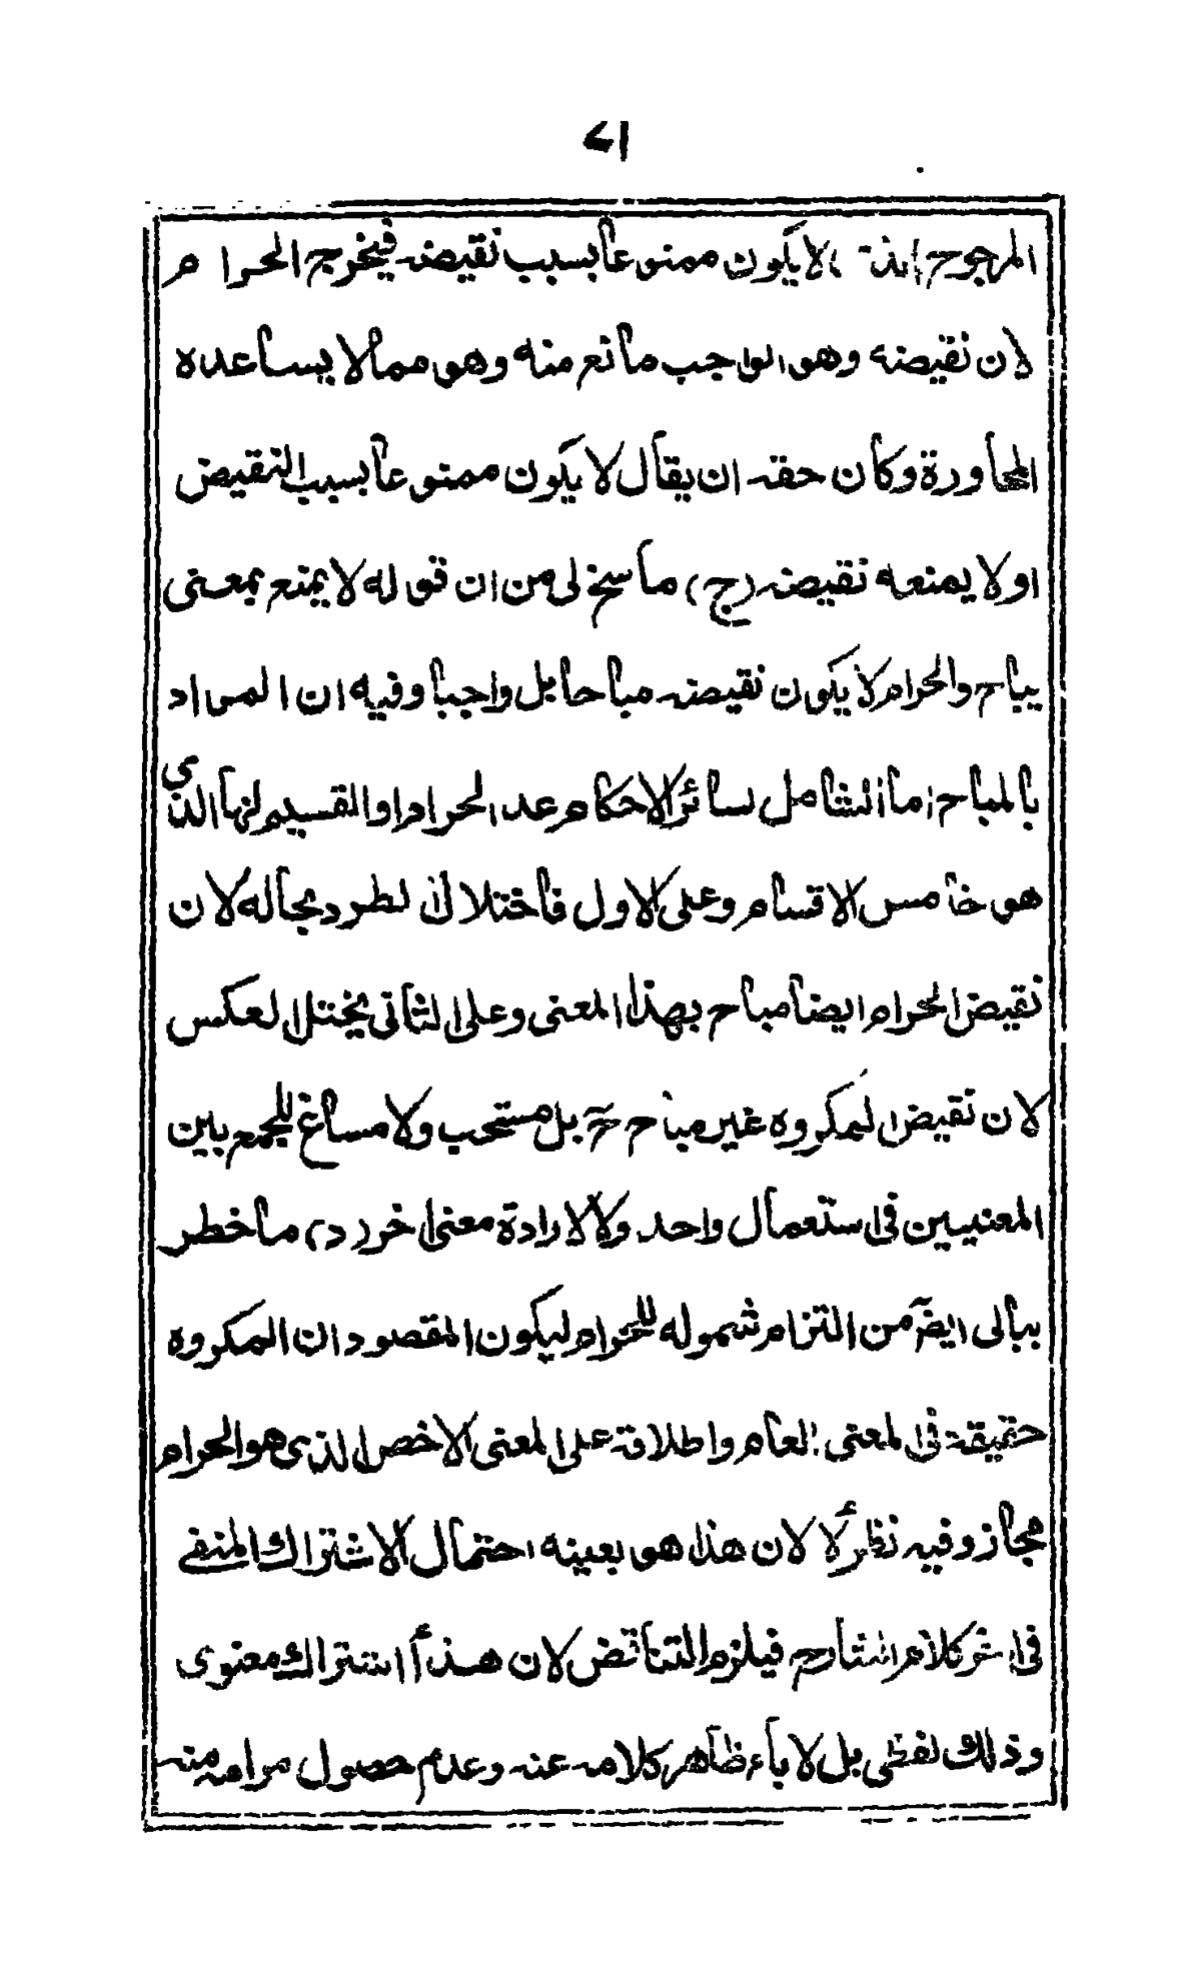 المرجوح لا يكون ممنوعا بسبب نقيضه فيخرج الحرام
لان نقيضه وهو الواجب مانع منه وهو مما لا يساعده
المحاورة وكان حقه ان يقال لا يكون ممنوعا بسبب النقيض
او لا يمنعه نقيضه (ج) ما سنح لى من ان قوله لا يمنع بمعنى
يباح والحرام لا يكون نقيضه مباحا بل واجبا وفيه ان المراد
بالمباح اما الشامل لسائر الاحكام عدا الحرام او القسيم لها الذي
هو خامس الاقسام وعلى الاول فاختلال الطرد بحاله لان
نقيض الحرام ايضا مباح بهذا المعنى وعلى الثانى يختل العكس
لان نقيض المكروه غير مباح ح بل مستحب ولا مساغ للجمع بين
المعنيين فى استعمال واحد ولا لارادة معنى اخر (د) ما خطر
ببالى ايضا من التزام شموله للحرام ليكون المقصود ان المكروه
حقيقة فى المعنى العام واطلاقه على المعنى الاخص الذى هو الحرام
مجاز وفيه نظر لا لان هذا هو بعينه احتمال الاشتراك المنفے
فى اخر كلام الشارح فيلزم التناقض لان هذا اشتراك معنوى
وذلك لفظى بل لاباء ظاهر كلامه عنه وعدم حصول مرامه منه